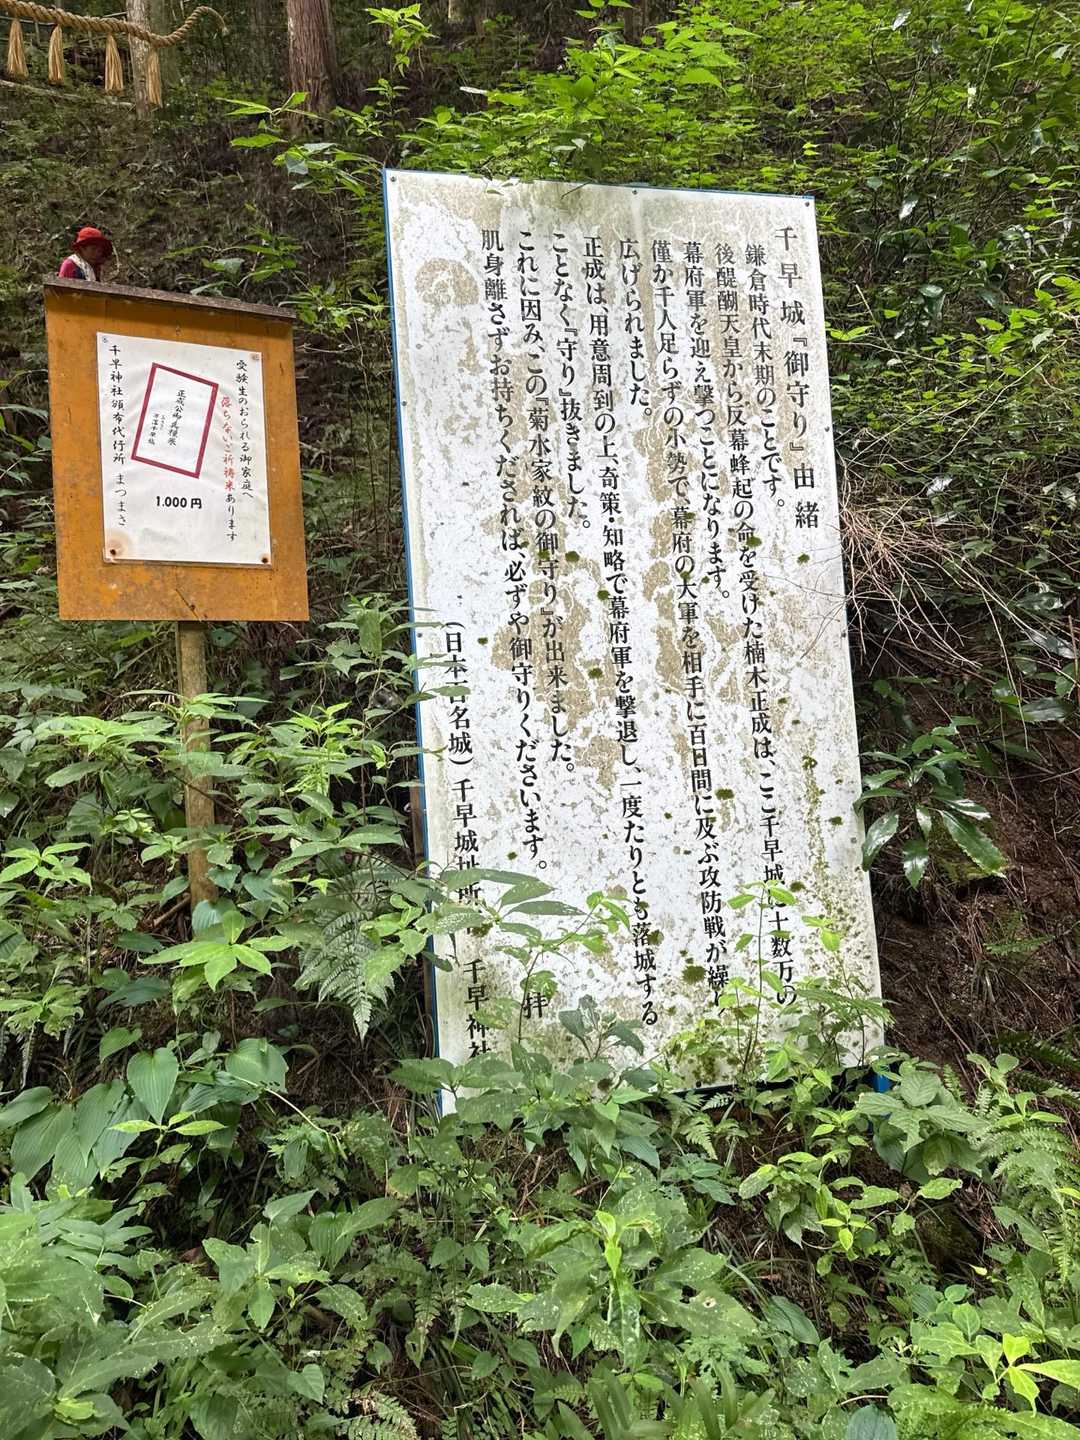 千早城『御守り』由緒
鎌倉時代末期のことです。
後醍醐天皇から反幕蜂起の命を受けた楠木正成は、ここ千早城に十数万の
幕府軍を迎え撃つことになります。
僅か千人足らずの小勢で、幕府の大軍を相手に百日間に及ぶ攻防戦が繰り
広げられました。
正成は、用意周到の上、奇策・知略で幕府軍を撃退し、一度たりとも落城する
ことなく『守り』抜きました。
これに因みこの『菊水家紋の御守り』が出来ました。
肌身離さずお持ちくだされば、必ずや御守りくださいます。
拝
(日本百名城) 千早城址所 千早神社
受験生のおられる御家庭へ
落ちないご祈祷米あります
正成公御兵糧米
1.000円
千早神社頒布代行所 まつまさ